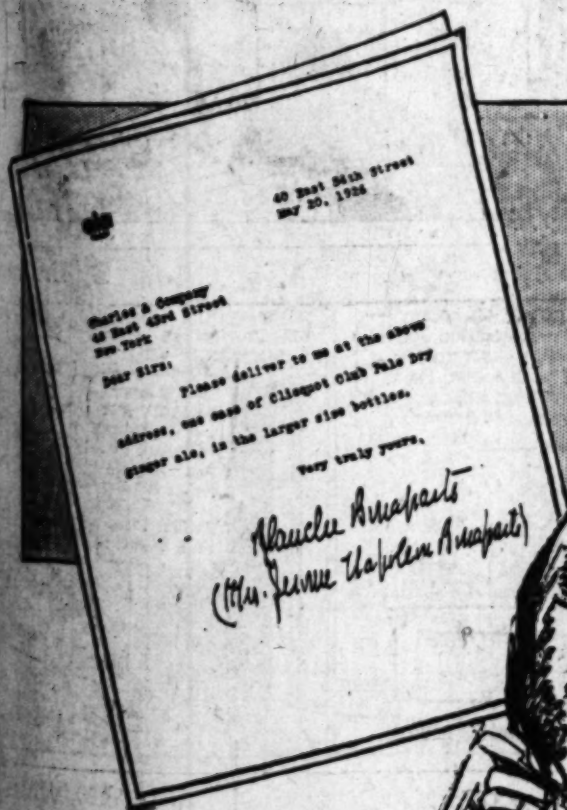 40 East 54th Street
May 20, 1926
Charles & Company
48 East 43rd Street
New York
Dear Sirs:
Please deliver to me at the above
address, one case of Clicquot Club Pale Dry
ginger ale, in the larger size bottles.
Very truly yours,
Blanche Bonaparte
(Mrs. Jerome Napoleon Bonaparte)